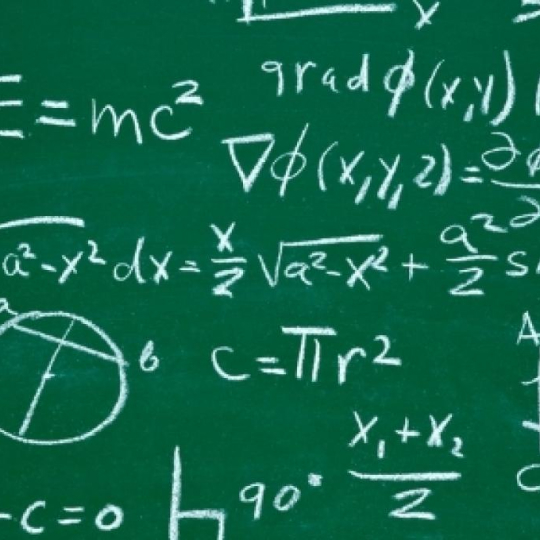 y
grad φ(x,y)
E = mc²
∇φ(x,y,z) = ∂φ
√a²-x² dx = x/2 √a²-x² + a²/2 s
a
b
c = πr²
A
x₁ + x₂ / 2
-c = 0
90°